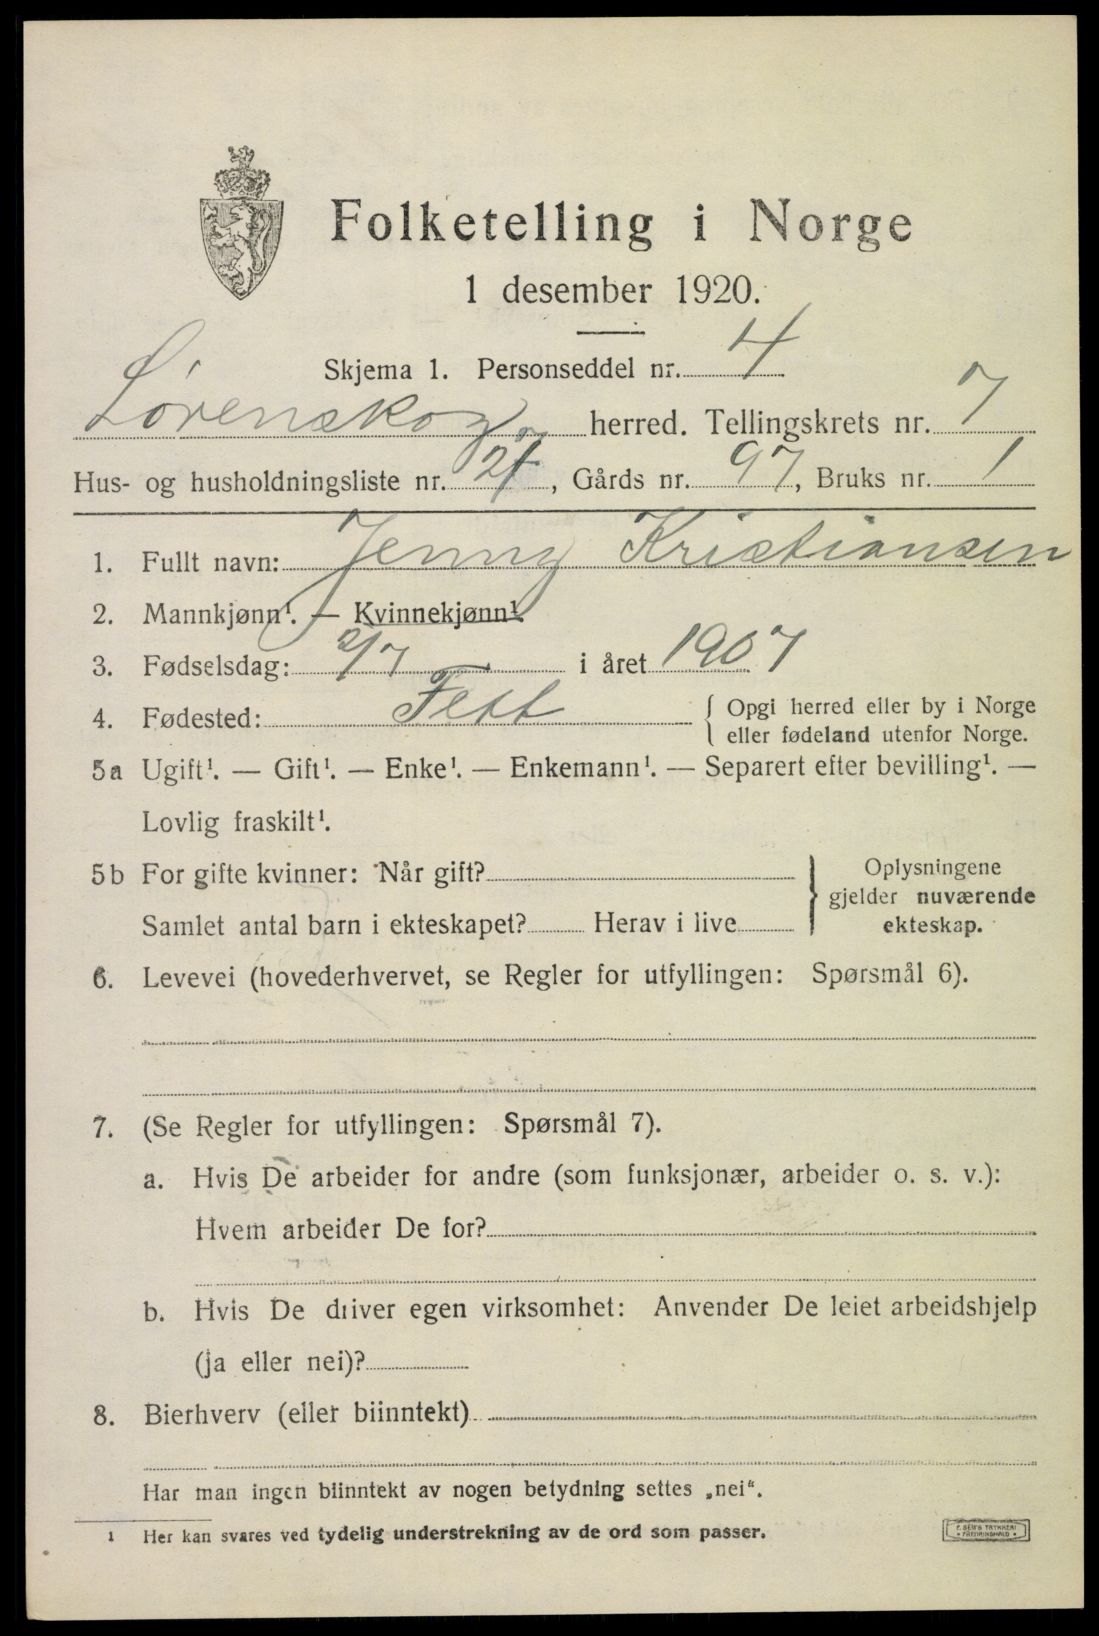 Folketelling i Norge
1 desember 1920.
Skjema 1. Personseddel nr. 4
Lørenskog herred. Tellingskrets nr. 7
Hus- og husholdningsliste nr. 27, Gårds nr. 97, Bruks nr. 1
1. Fullt navn: Jenny Kristiansen
2. Mannkjønn¹. — Kvinnekjønn¹.
3. Fødselsdag: 2/7 i året 1907
4. Fødested: Fett { Opgi herred eller by i Norge
eller fødeland utenfor Norge.
5a Ugift¹. — Gift¹. — Enke¹. — Enkemann¹. — Separert efter bevilling¹. —
Lovlig fraskilt¹.
5b For gifte kvinner: Når gift?
Samlet antal barn i ekteskapet? Herav i live
} Oplysningene
gjelder nuværende
ekteskap.
6. Levevei (hovederhvervet, se Regler for utfyllingen: Spørsmål 6).
7. (Se Regler for utfyllingen: Spørsmål 7).
a. Hvis De arbeider for andre (som funksjonær, arbeider o. s. v.):
Hvem arbeider De for?
b. Hvis De driver egen virksomhet: Anvender De leiet arbeidshjelp
(ja eller nei)?
8. Bierhverv (eller biinntekt)
Har man ingen biinntekt av nogen betydning settes „nei“.
¹ Her kan svares ved tydelig understrekning av de ord som passer.
F. SEM'S TRYKKERI
• FREDRIKSHALD •